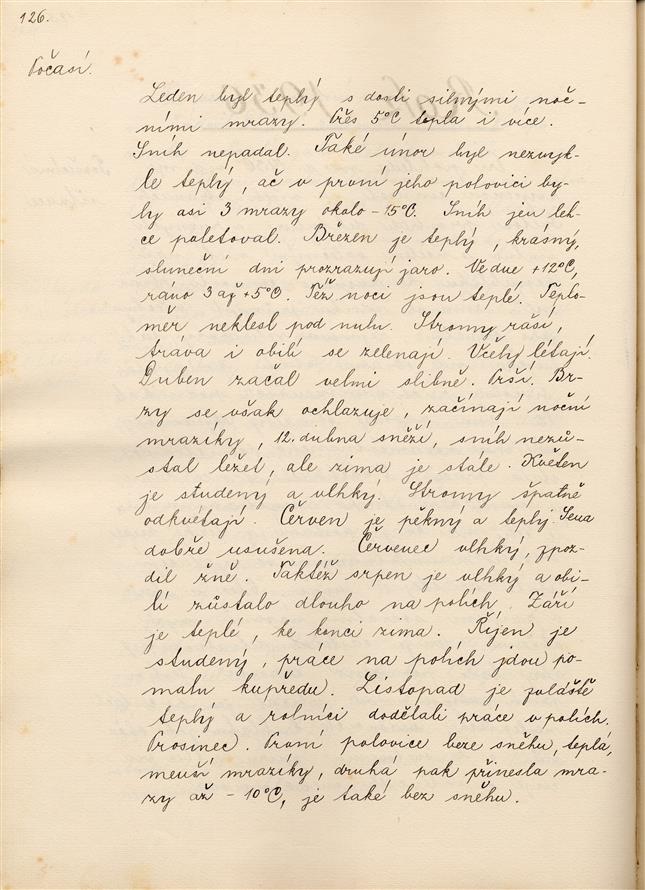 126.
Počasí.
Leden byl teplý s dosti silnými noč-
ními mrazy. Přes 5°C tepla i více.
Sníh nepadal. Také únor byl nezvyk-
le teplý, ač v první jeho polovici by-
ly asi 3 mrazy okolo -15°C. Sníh jen leh-
ce poletoval. Březen je teplý, krásný,
sluneční dni prozrazují jaro. Ve dne +12°C,
ráno 3 až +5°C. Též noci jsou teplé. Teplo-
měr neklesl pod nulu. Stromy raší,
tráva i obilí se zelenají. Včely létají.
Duben začal velmi slibně. Prší. Br-
zy se však ochlazuje, začínají noční
mrazíky, 12. dubna sněží, sníh nezů-
stal ležet, ale zima je stále. Květen
je studený a vlhký. Stromy špatně
odkvétají. Červen je pěkný a teplý. Sena
dobře usušena. Červenec vlhký, zpoz-
dil žně. Taktéž srpen je vlhký a obi-
lí zůstalo dlouho na polích. Září
je teplé, ke konci zima. Říjen je
studený, práce na polích jdou po-
malu kupředu. Listopad je zvláště
teplý a rolníci dodělali práce v polích.
Prosinec. První polovice beze sněhu, teplá,
menší mrazíky, druhá pak přinesla mra-
zy až -10°C, je také bez sněhu.